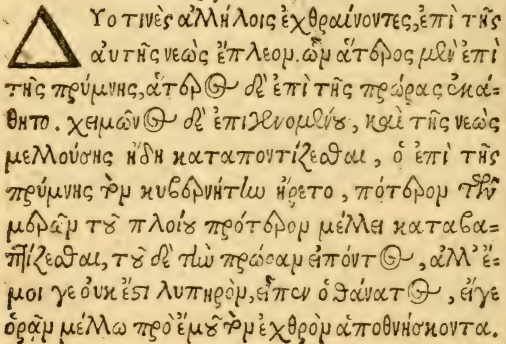 Δύο τινὲς ἀλλήλοις ἐχθραίνοντες, ἐπὶ τῆς
αὐτῆς νεὼς ἔπλεον. ὧν ἅτερος μὲν ἐπὶ
τῆς πρύμνης, ἅτερος δὲ ἐπὶ τῆς πρώρας ἐκά=
θητο. χειμῶνος δὲ ἐπιγενομένου, καὶ τῆς νεὼς
μελλούσης ἤδη καταποντίζεσθαι, ὁ ἐπὶ τῆς
πρύμνης τὸν κυβερνήτην ἤρετο, πότερον τῶν
μερῶν τοῦ πλοίου πρότερον μέλλει καταβα=
πτίζεσθαι, τοῦ δὲ τὴν πρώραν εἰπόντος, ἀλλ' ἔ=
μοι γε οὐκ ἔστι λυπηρὸν, εἶπεν ὁ θάνατος, εἴγε
ὁρᾶν μέλλω πρὸ ἐμοῦ τὸν ἐχθρὸν ἀποθνήσκοντα.